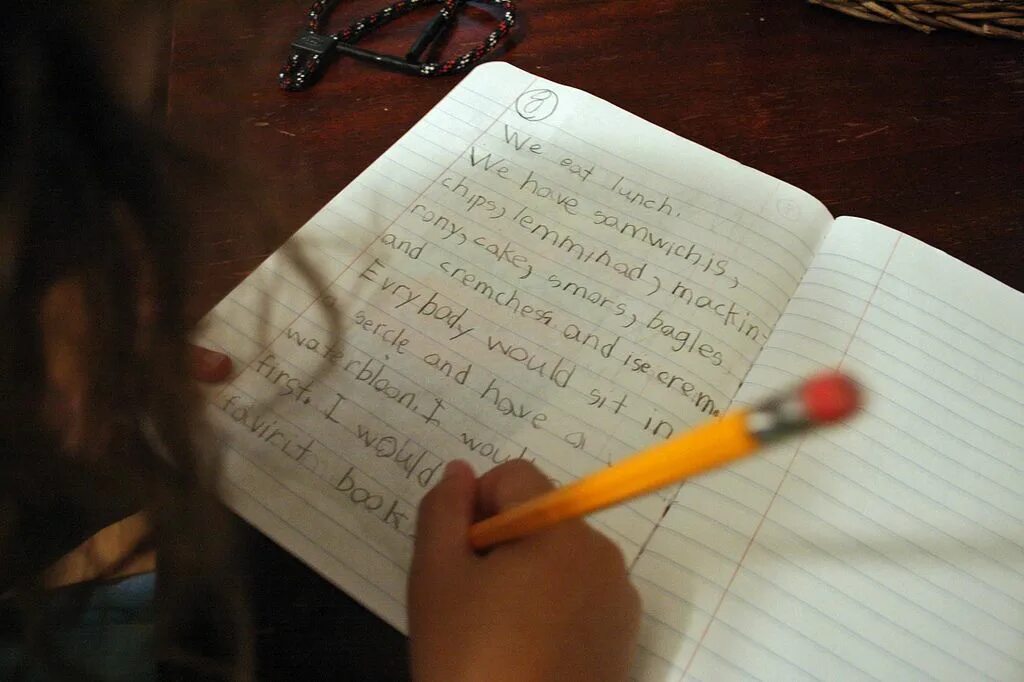 9
We eat lunch.
We have samwichis,
chips, lemminad, mackin-
rony, cake, smors, bagles
and cremchess and ise crem.
Evrybody would sit in
a sercle and have a
waterbloon. I
first. I would
favirit book